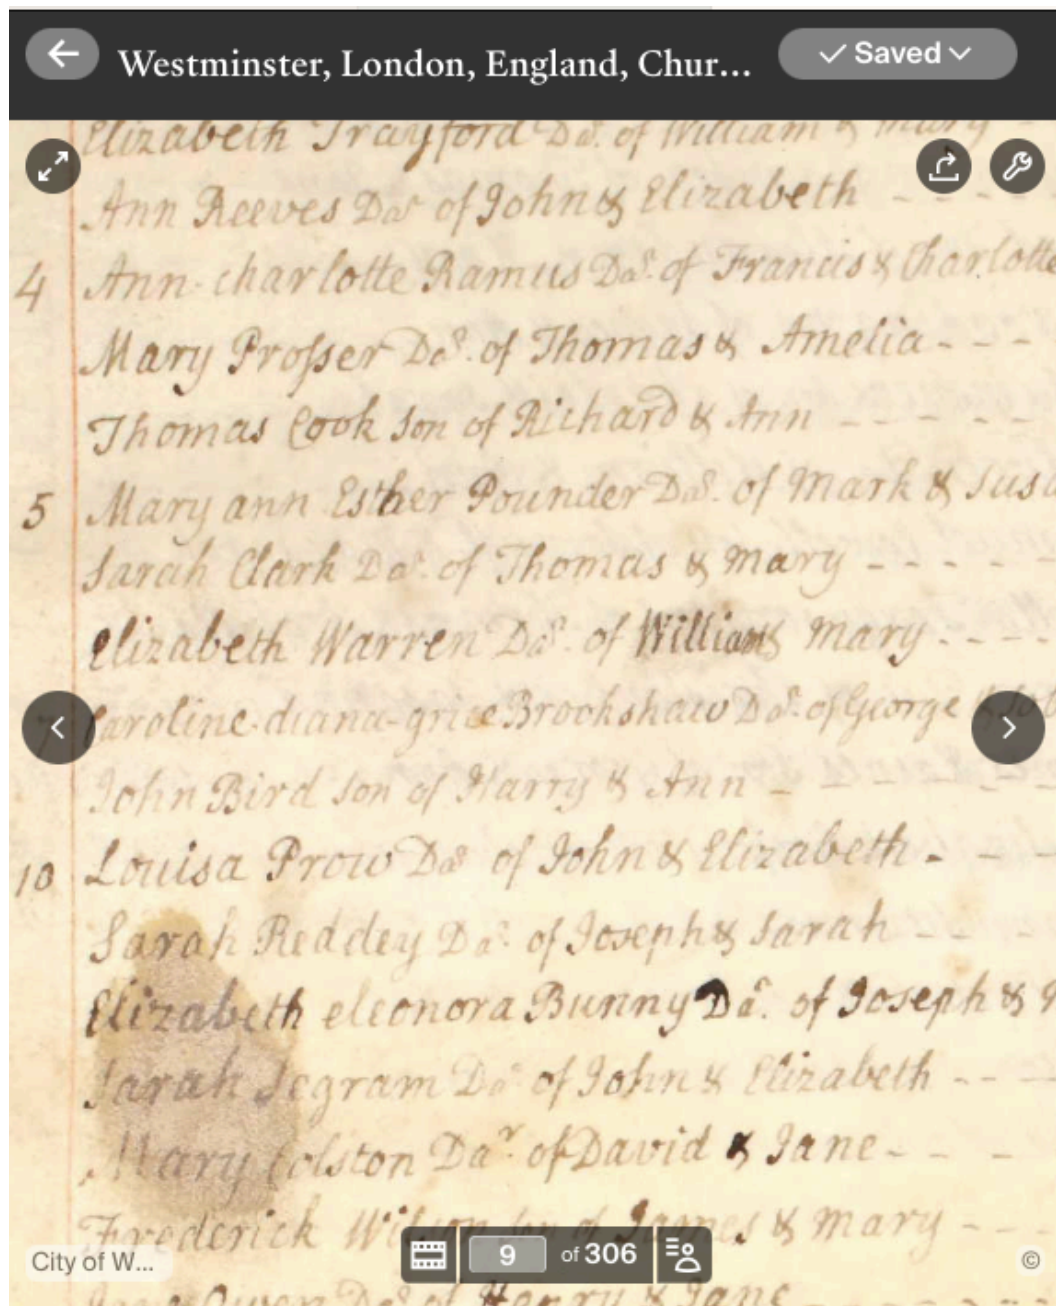 Westminster, London, England, Chur...
Saved
Elizabeth Trayford Dar. of William & Mary -
Ann Reeves Dar of John & Elizabeth - - - -
4 Ann-charlotte Ramus Dar. of Francis & Charlotte
Mary Proſser Dar. of Thomas & Amelia - - - -
Thomas Cook Son of Richard & Ann - - - - -
5 Mary ann Esther Pounder Dar. of Mark & Susa
Sarah Clark Dar. of Thomas & Mary - - - - -
Elizabeth Warren Dar. of William & Mary - - - -
Caroline-diana-grice Brookshaw Dar. of George &
John Bird Son of Harry & Ann - - - - -
10 Louisa Prow Dar of John & Elizabeth - - -
Sarah Reddey Dar. of Joseph & Sarah - - -
Elizabeth eleonora Bunny Dar. of Joseph &
Sarah Segram Dar of John & Elizabeth - - -
Mary Colston Dar. of David & Jane - - - -
Frederick Wilson Son of James & Mary - - -
City of W...
9 of 306
©
Owen Dar. of Harry & Jane